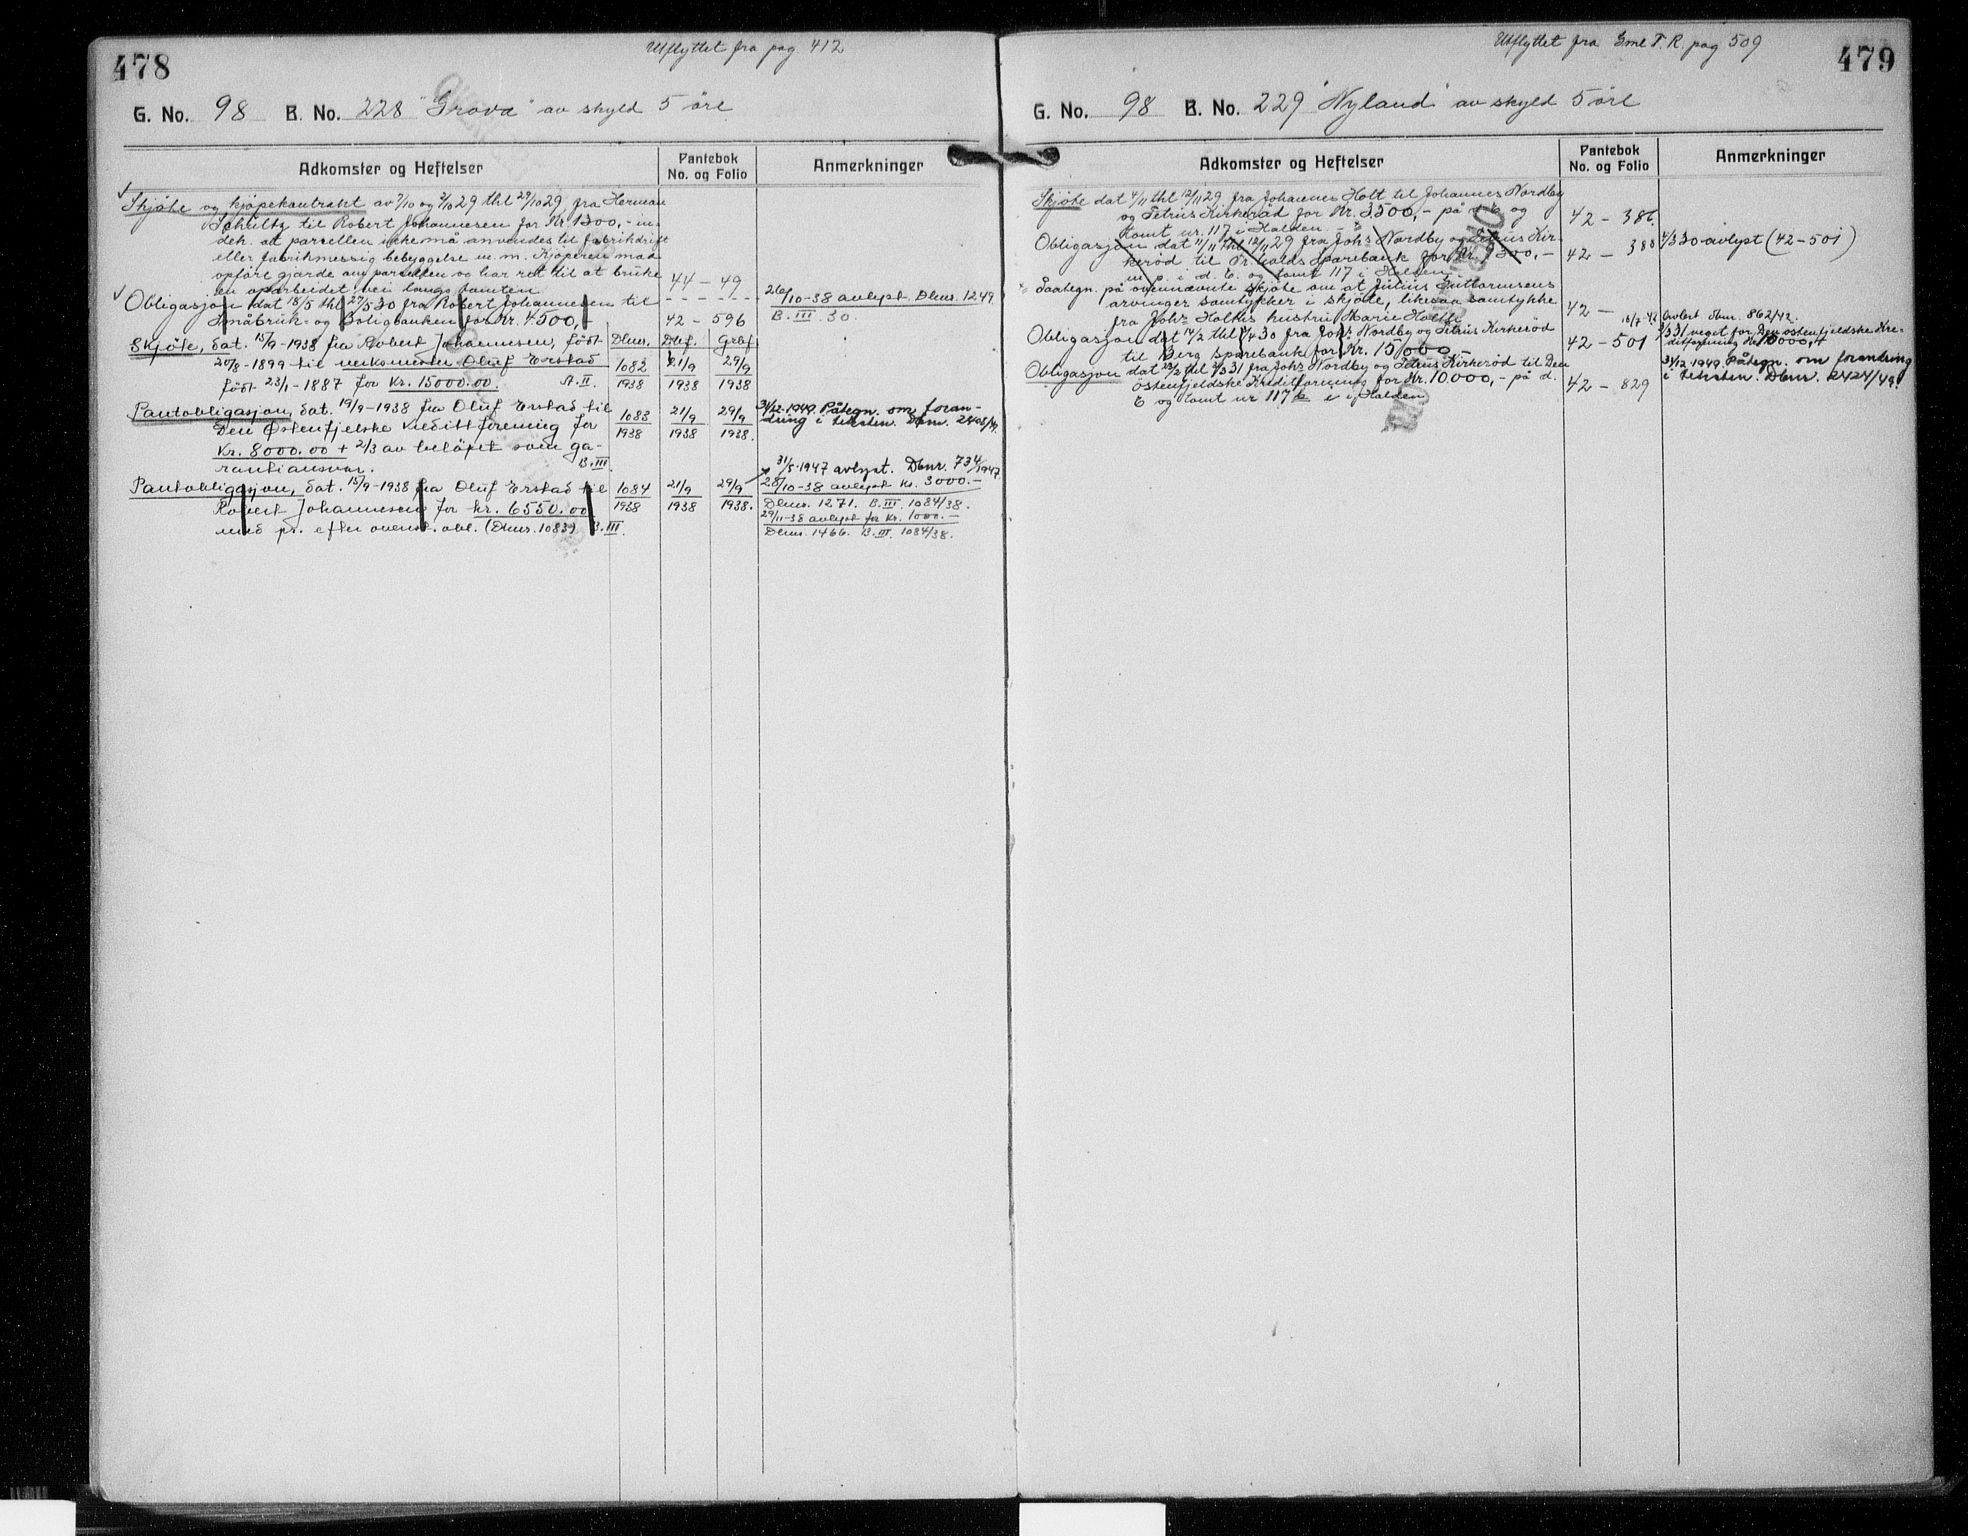 478
Utflyttet fra pag 412
G. No. 98 B. No. 228 "Grova" av skyld 5 öre
Adkomster og Heftelser
Pantebok
No. og Folio
Anmerkninger
Skjöte og kjöpekontrakt av 7/10 og 3/10 29 thl 29/10 29 fra Herman
Schultz til Robert Johannesen for Kr. 1300,- in-
deh. at parsellen ikke må anvendes til fabrikdrift
eller fabrikmessig bebyggelse m. m. Kjöperen må
opföre gjærde om parsellen og har ret til at bruke
en oparbeidet vei langs tomten. 44 - 49
Obligasjon dat 18/5 thl 27/5 30 fra Robert Johannesen til
Småbruk- og Boligbanken for Kr. 4500,- 42 - 596
26/10-38 avlyst. Dbnr. 1249
B. III. 30.
Skjöte, dat. 15/9-1938 fra Robert Johannesen, födt Dbnr. Dbf. Grbf.
20/8-1899 til verksmester Oluf Erstad 1082 21/9 29/9
födt 23/1-1887 for kr. 15000.00 A. II. 1938 1938 1938
Pantobligasjon, dat. 19/9-1938 fra Oluf Erstad til 1083 21/9 29/9
Den Østenfjelske Kreditforening for 1938 1938 1938.
Kr. 8000.00 + 2/3 av belöpet som ga-
rantiansvar. B. III.
31/12-1949. Påtegn. om foran-
dring i teksten. Dbnr.
31/5-1947 avlyst. Dbnr. 734/1947.
Pantobligasjon, dat. 15/9-1938 fra Oluf Erstad til 1084 21/9 29/9
Robert Johannesen for kr. 6550.00 1938 1938 1938.
med pr. efter ovenst. obl. (Dbnr. 1083) B. III.
28/10-38 avlyst kr. 3000.-
Dbnr. 1271. B. III. 1084/38.
29/11-38 avlyst for kr. 1000.-
Dbnr. 1466. B. III. 1084/38.
479
Utflyttet fra Gml P. R. pag 509
G. No. 98 B. No. 229 "Nyland" av skyld 5 öre
Adkomster og Heftelser
Pantebok
No. og Folio
Anmerkninger
Skjöte dat 4/11 thl 12/11 29 fra Johannes Holt til Johannes Nordby
og Petrus Kirkeröd for Kr. 3500,- på d. E. og
tomt nr. 117 i Halden. 42 - 386.
Obligasjon dat 11/11 thl 12/11 29 fra Johs Nordby og Petrus Kir-
keröd til Fr.halds Sparebank for Kr. 9300,- 42 - 388
m. p. i d. E. og tomt 117 i Halden
4/3 30 avlyst (42-501)
Paategn. på ovennævnte skjöte om at Julius Guttormsens
arvinger samtykker i skjöte, likesaa samtykke
fra Johs Holtes hustru Marie Holte 42 -
Obligasjon dat 14/2 thl 4/4 30 fra Johs Nordby og Petrus Kirkeröd
til Berg Sparebank for Kr. 15000,- 42 - 501
15/7-42 avlyst Dbnr. 862/42.
3/3 31 veget for Den östenfjeldske Kre-
ditforening Kr. 10000,-
Obligasjon dat 23/2 thl 3/3 31 fra Johs Nordby og Petrus Kirkeröd til Den
östenfjeldske Kreditforening for Kr. 10000,- på d.
E og tomt nr 117 b i Halden 42 - 829
31/12 1949. Påtegn. om forandring
i teksten. Dbnr. 2424/49.